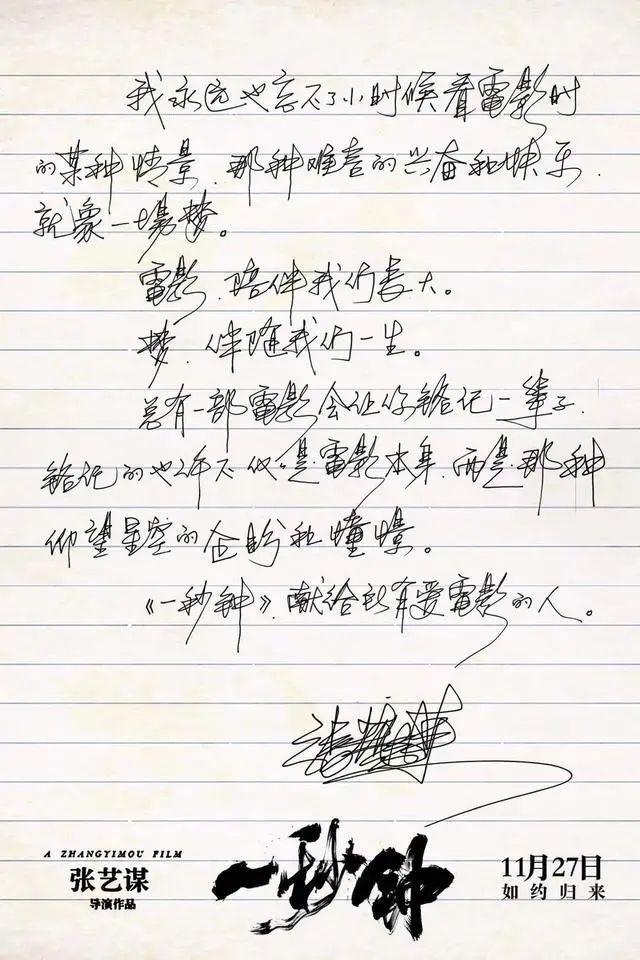 我永远也忘不了小时候看電影时
的某种情景,那种难言的兴奋和快乐,
就象一場梦。
電影,陪伴我们长大。
梦,伴随我们一生。
总有一部電影会让你铭记一辈子,
铭记的也许不仅是電影本身,而是那种
仰望星空的企盼和憧憬。
《一秒钟》,献给所有爱電影的人。
A ZHANGYIMOU FILM
张艺谋
导演作品
一秒钟
11月27日
如约归来